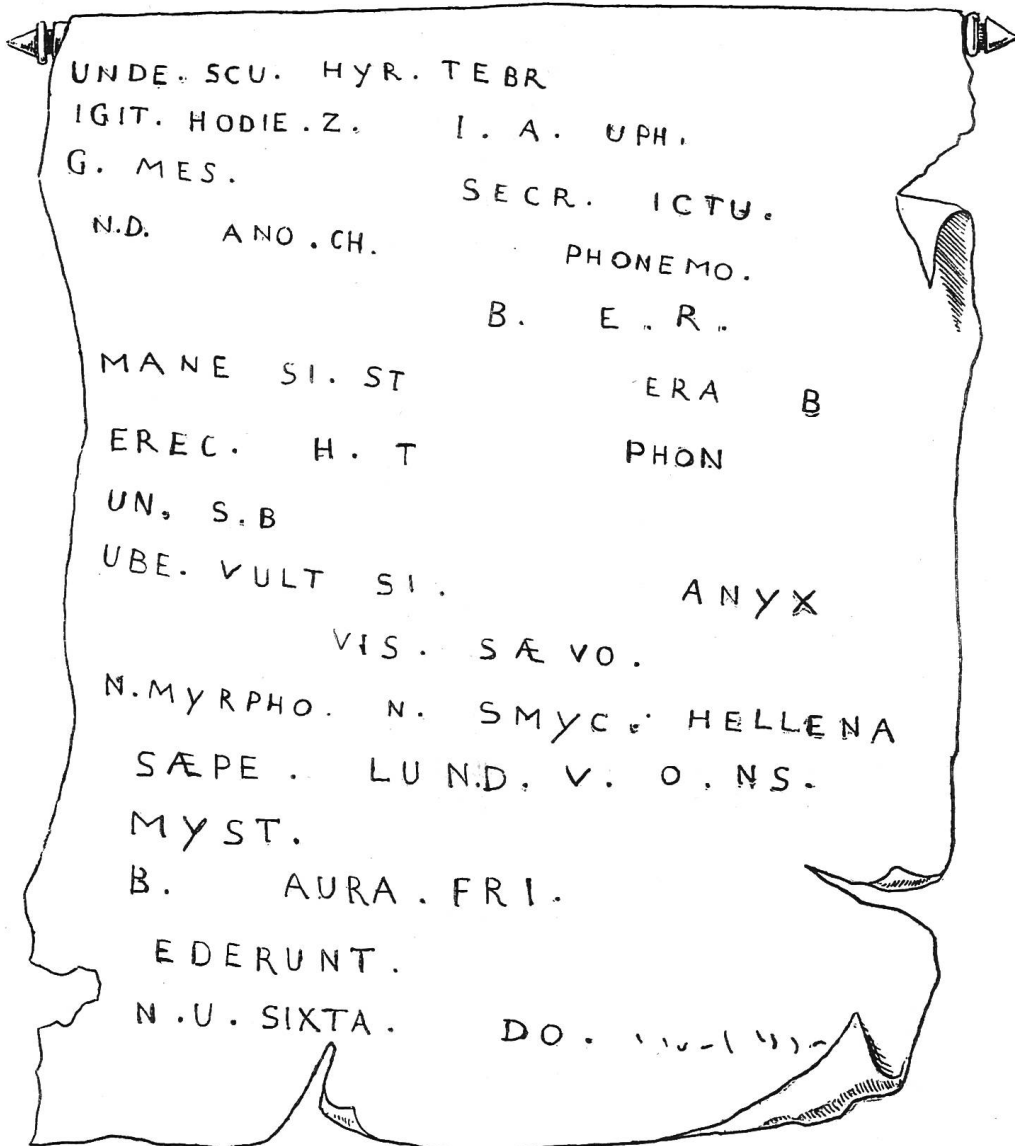 UNDE. SCU. HYR. TEBR
IGIT. HODIE. Z. I. A. UPH.
G. MES. SECR. ICTU.
N.D. ANO. CH. PHONEMO.
B. E. R.
MANE SI. ST ERA B
EREC. H. T PHON
UN. S. B
UBE. VULT SI. ANYX
VIS. SÆVO.
N. MYRPHO. N. SMYC. HELLENA
SÆPE. LUN.D. V. O. NS.
MYST.
B. AURA. FRI.
EDERUNT.
N.U. SIXTA. DO.